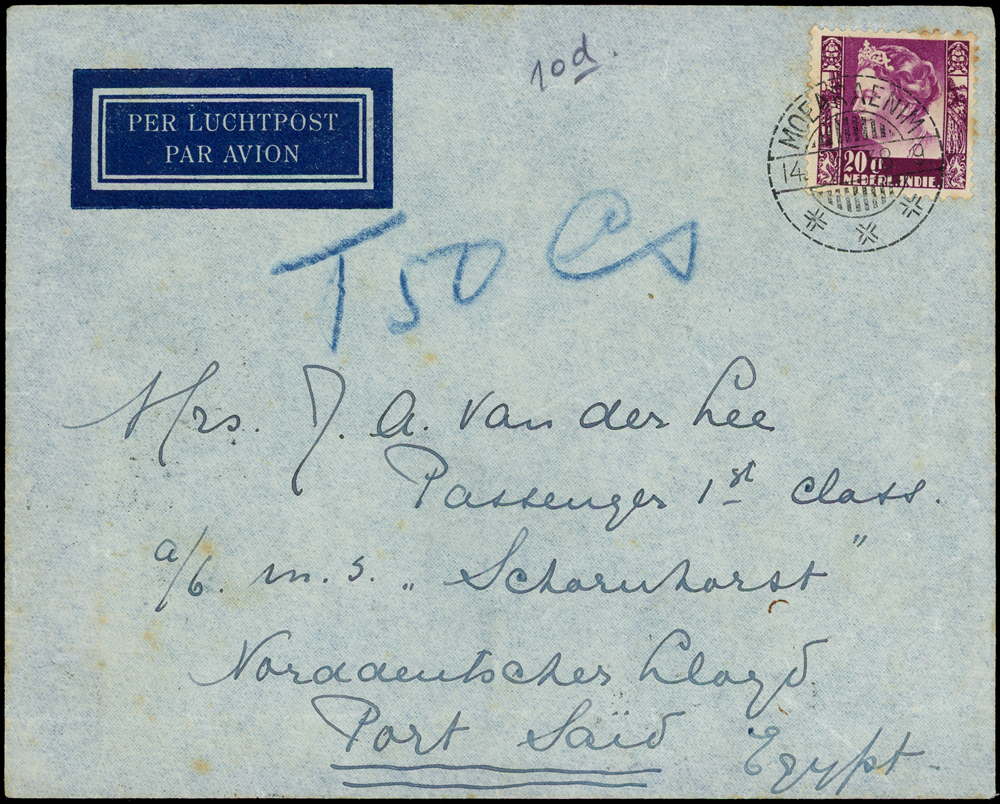 10d.
PER LUCHTPOST
PAR AVION
20 ct
NEDERL.INDIE.
MOEARAENIM
14.
T 50 Cs
Mrs. J. A. van der Lee
Passenger 1st class.
a/b. m.s. „Scharnhorst”
Norddeutscher Lloyd.
Port Saïd
Egypt.